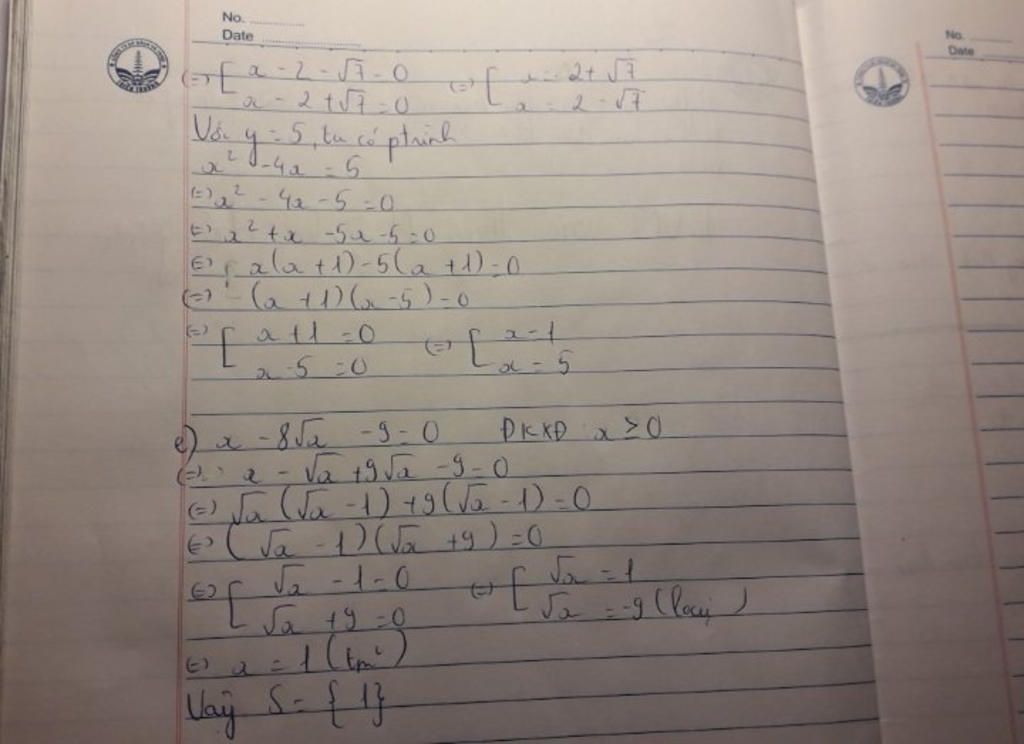 No. ............
Date ........................
No.
Date
(=) [ x - 2 - √7 = 0 (=) [ x = 2 + √7
x - 2 + √7 = 0 x = 2 - √7
Với y = 5, ta có ptrình
x² - 4x = 5
(=) x² - 4x - 5 = 0
(=) x² + x - 5x - 5 = 0
(=) x(x + 1) - 5(x + 1) = 0
(=) (x + 1)(x - 5) = 0
(=) [ x + 1 = 0 (=) [ x = 1
x - 5 = 0 x = 5
e) x - 8√x - 9 = 0 ĐKXĐ x ≥ 0
(=) x - √x + 9√x - 9 = 0
(=) √x (√x - 1) + 9(√x - 1) = 0
(=) (√x - 1)(√x + 9) = 0
(=) [ √x - 1 = 0 (=) [ √x = 1
√x + 9 = 0 √x = -9 (loại)
(=) x = 1 (tm)
Vậy S = { 1}